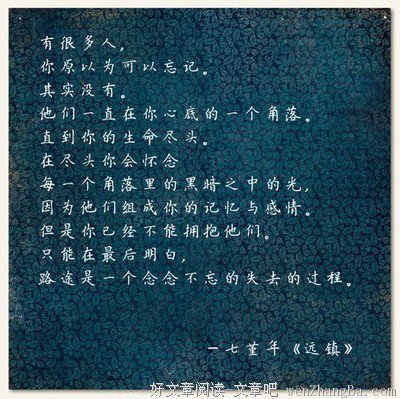 有很多人，
你原以为可以忘记。
其实没有。
他们一直在你心底的一个角落。
直到你的生命尽头。
在尽头你会怀念
每一个角落里的黑暗之中的光，
因为他们组成你的记忆与感情。
但是你已经不能拥抱他们。
只能在最后明白，
路途是一个念念不忘的失去的过程。
一七堇年《远镇》
好文章阅读 文章吧 wenzhangBa.com